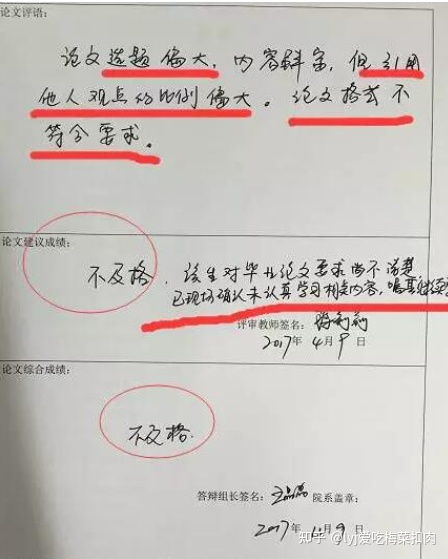 论文评语:
论文选题偏大,内容详实,但引用
他人观点的比例偏大。论文格式不
符合要求。
论文建议成绩:
不及格,该生对毕业论文要求尚不清楚
已现场确认未认真学习相关内容,
评审教师签名:
2017年4月9日
论文综合成绩:
不及格.
答辩组长签名: 院系盖章:
2017年 月9日
知乎 @lyj爱吃梅菜扣肉